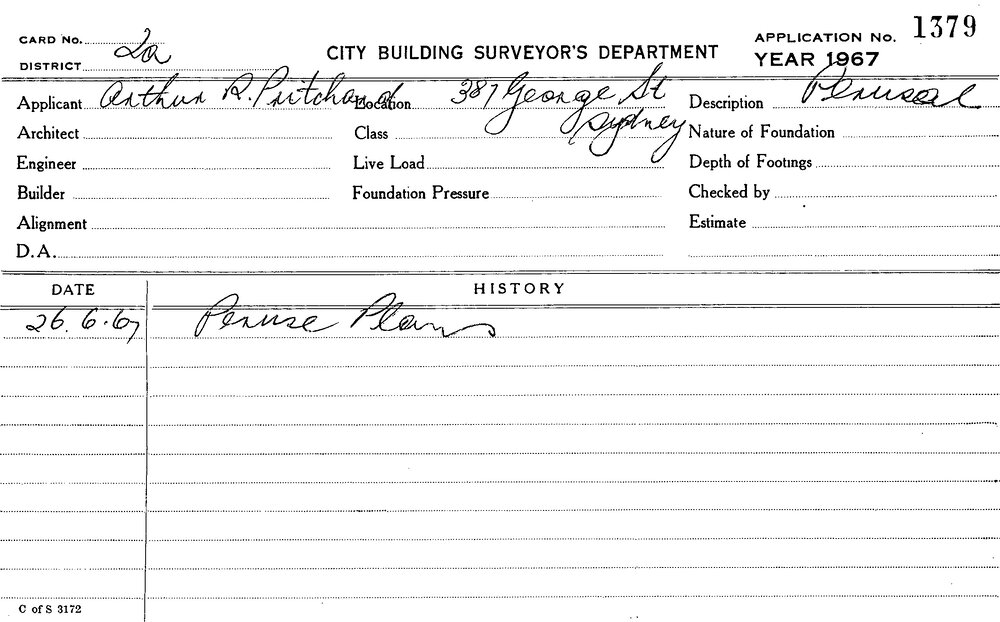 CARD No. 2a
DISTRICT
CITY BUILDING SURVEYOR'S DEPARTMENT
APPLICATION No. 1379
YEAR 1967
Applicant Arthur R. Pritchard Location 387 George St Sydney Description Perusal
Architect Class Nature of Foundation
Engineer Live Load Depth of Footings
Builder Foundation Pressure Checked by
Alignment Estimate
D.A.
DATE HISTORY
26.6.67 Peruse Plans
C of S 3172